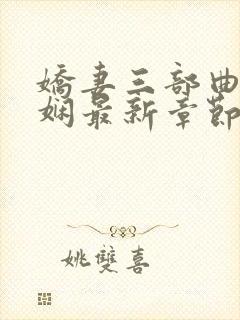 嬌妻三部曲
娴最新章節
姚雙喜